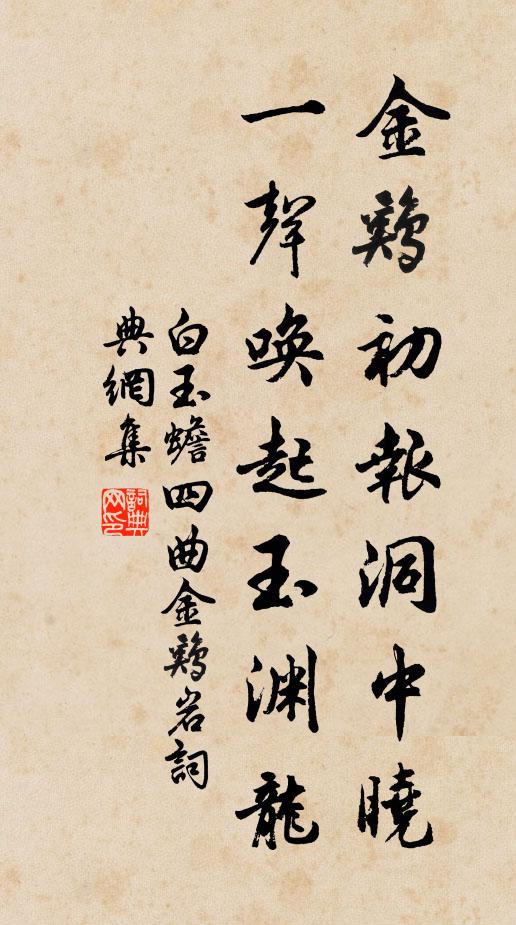 金鷄初報洞中曉
一聲喚起玉淵龍
白玉蟾四曲金鷄岩詞
典網集
詞典網印